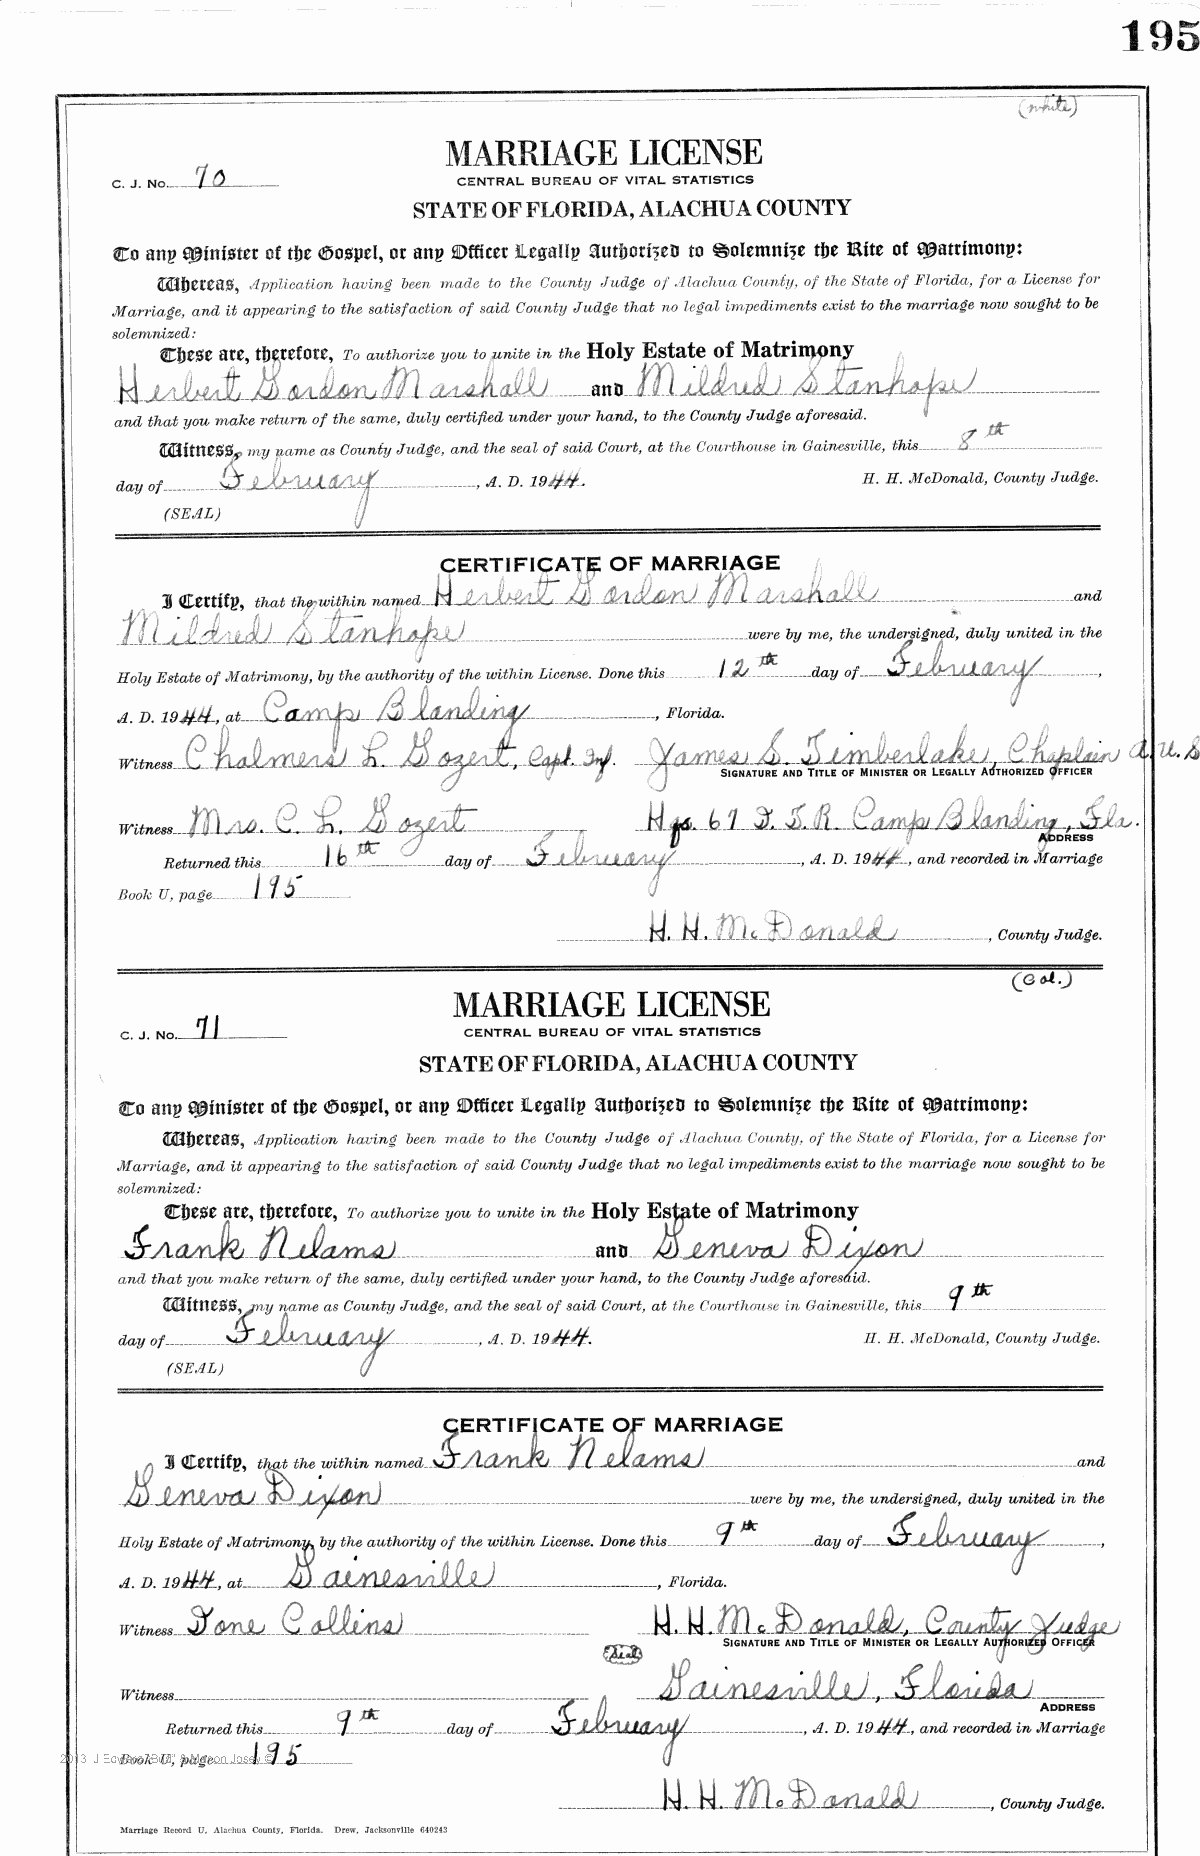 195
(white)
MARRIAGE LICENSE
C. J. No. 70
CENTRAL BUREAU OF VITAL STATISTICS
STATE OF FLORIDA, ALACHUA COUNTY
To any Minister of the Gospel, or any Officer Legally Authorized to Solemnize the Rite of Matrimony:
Whereas, Application having been made to the County Judge of Alachua County, of the State of Florida, for a License for
Marriage, and it appearing to the satisfaction of said County Judge that no legal impediments exist to the marriage now sought to be
solemnized:
These are, therefore, To authorize you to unite in the Holy Estate of Matrimony
Herbert Gordon Marshall and Mildred Stanhope
and that you make return of the same, duly certified under your hand, to the County Judge aforesaid.
Witness, my name as County Judge, and the seal of said Court, at the Courthouse in Gainesville, this 8th
day of February, A. D. 1944. H. H. McDonald, County Judge.
(SEAL)
CERTIFICATE OF MARRIAGE
I Certify, that the within named Herbert Gordon Marshall and
Mildred Stanhope were by me, the undersigned, duly united in the
Holy Estate of Matrimony, by the authority of the within License. Done this 12th day of February,
A. D. 1944, at Camp Blanding, Florida.
Witness Chalmers L. Gozert, Capt. Inf. James S. Timberlake, Chaplain A.U.S
SIGNATURE AND TITLE OF MINISTER OR LEGALLY AUTHORIZED OFFICER
Witness Mrs. C. L. Gozert Hqs. 67 I.T.R. Camp Blanding, Fla.
ADDRESS
Returned this 16th day of February, A. D. 1944, and recorded in Marriage
Book U, page 195
H. H. McDonald, County Judge.
(Col.)
MARRIAGE LICENSE
C. J. No. 71
CENTRAL BUREAU OF VITAL STATISTICS
STATE OF FLORIDA, ALACHUA COUNTY
To any Minister of the Gospel, or any Officer Legally Authorized to Solemnize the Rite of Matrimony:
Whereas, Application having been made to the County Judge of Alachua County, of the State of Florida, for a License for
Marriage, and it appearing to the satisfaction of said County Judge that no legal impediments exist to the marriage now sought to be
solemnized:
These are, therefore, To authorize you to unite in the Holy Estate of Matrimony
Frank Nelams and Geneva Dixon
and that you make return of the same, duly certified under your hand, to the County Judge aforesaid.
Witness, my name as County Judge, and the seal of said Court, at the Courthouse in Gainesville, this 9th
day of February, A. D. 1944. H. H. McDonald, County Judge.
(SEAL)
CERTIFICATE OF MARRIAGE
I Certify, that the within named Frank Nelams and
Geneva Dixon were by me, the undersigned, duly united in the
Holy Estate of Matrimony, by the authority of the within License. Done this 9th day of February,
A. D. 1944, at Gainesville, Florida.
Witness Ione Collins H. H. McDonald, County Judge
SIGNATURE AND TITLE OF MINISTER OR LEGALLY AUTHORIZED OFFICER
Seal
Witness Gainesville, Florida
ADDRESS
Returned this 9th day of February, A. D. 1944, and recorded in Marriage
Book U, page 195
H. H. McDonald, County Judge.
Marriage Record U, Alachua County, Florida. Drew, Jacksonville 640243